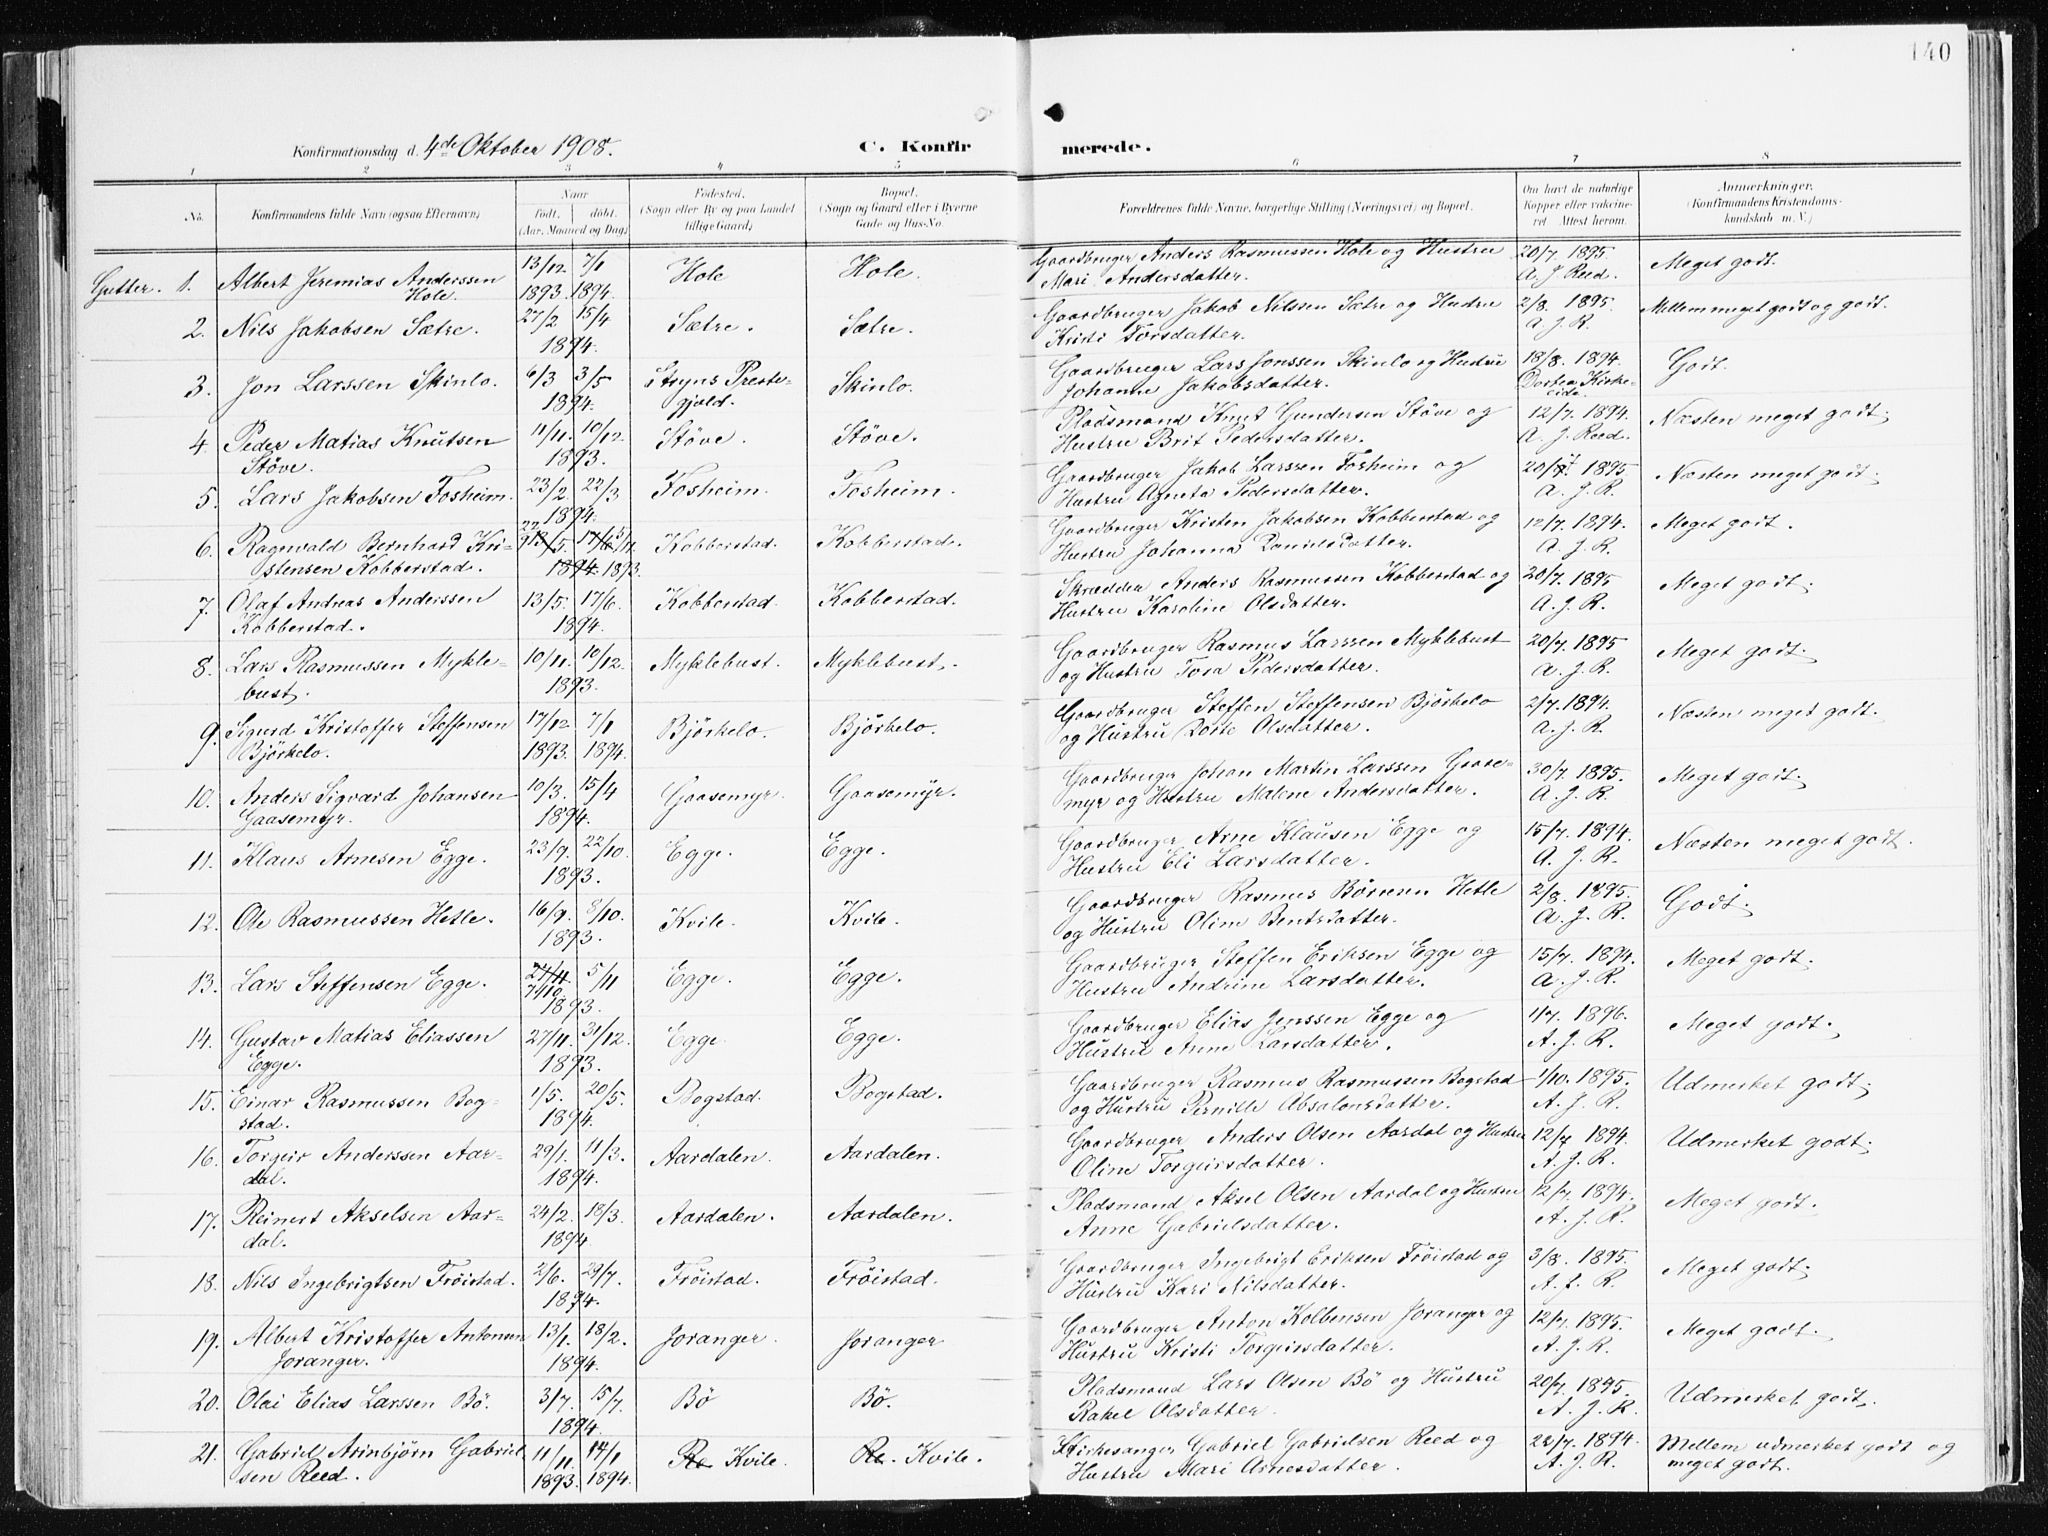 140
Konfirmationsdag d. 4de Oktober 1908.
C. Konfirmerede.
1 2 3 4 5 6 7 8
No. Konfirmandens fulde Navn (ogsaa Efternavn) Naar født, døbt. (Aar, Maaned og Dag) Fødested. (Sogn eller By og paa Landet tillige Gaard) Bopæl. (Sogn og Gaard eller i Byerne Gade og Hus-No. Forældrenes fulde Navne, borgerlige Stilling (Næringsvei) og Bopæl. Om havt de naturlige Kopper eller vakcineret. Attest herom. Anmærkninger. (Konfirmandens Kristendomskundskab m. V.)
Gutter. 1. Albert Jeremias Anderssen 13/12 7/1 Hole Hole. Gaardbruger Anders Rasmussen Hole og Hustru 20/7. 1895 Meget godt.
Hole. 1893. 1894. Mari Andersdatter. A. J. Reed.
2. Nils Jakobsen Sætre. 27/2 15/4 Sætre. Sætre. Gaardbruger Jakob Nilssen Sætre og Hustru 2/8. 1895. Mellem meget godt og godt.
1894. Kristi Torsdatter. A. J. R.
3. Jon Larssen Skinlo. 6/3 3/5 Stryns Preste- Skinlo. Gaardbruger Lars Jonssen Skinlo og Hustru 18/8. 1894. Godt.
1894. gjeld. Johanne Jakobsdatter. Dortea Kirkeeide.
4. Peder Matias Knutsen 11/11. 10/12. Støve. Støve. Pladsmand Knut Gundersen Støve og 12/7. 1894. Næsten meget godt.
Støve. 1893. Hustru Brit Pedersdatter. A. J. Reed.
5. Lars Jakobsen Fosheim. 23/2 22/3 Fosheim. Fosheim. Gaardbruger Jakob Larssen Fosheim og 1895 Næsten meget godt.
1894. Hustru Agneta Pedersdatter. A. J. R.
6. Ragnvald Bernhard Kri- 13/5. 17/6 5/11. Kobberstad. Kobberstad. Gaardbruger Kristen Jakobsen Kobberstad og 12/7. 1894. Meget godt.
stensen Kobberstad. 1894. 1893. Hustru Johanna Danielsdatter. A. J. R.
7. Olaf Andreas Anderssen 13/5. 17/6. Kobberstad. Kobberstad. Skrædder Anders Rasmussen Kobberstad og 20/7. 1895 Meget godt.
Kobberstad. 1894. Hustru Karoline Olsdatter. A. J. R.
8. Lars Rasmussen Mykle- 10/11. 10/12. Myklebust. Myklebust. Gaardbruger Rasmus Larssen Myklebust 20/7. 1895 Meget godt.
bust. 1893. og Hustru Tora Pedersdatter. A. J. R.
9. Sigurd Kristoffer Steffensen 17/12. 7/1 Bjørkelo. Bjørkelo. Gaardbruger Steffen Steffensen Bjørkelo 2/7. 1894. Næsten meget godt.
Bjørkelo. 1893. 1894. og Hustru Dorte Olsdatter. A. J. R.
10. Anders Sigvard Johansen 10/3. 15/4 Gaasemyr. Gaasemyr. Gaardbruger Johan Martin Larssen Gaase- 30/7. 1895. Meget godt.
Gaasemyr. 1894. myr og Hustru Malene Andersdatter. A. J. R.
11. Klaus Arnesen Egge. 23/9. 22/10. Egge. Egge. Gaardbruger Arne Klausen Egge og 15/7. 1894. Næsten meget godt.
1893. Hustru Eli Larsdatter. A. J. R.
12. Ole Rasmussen Hetle. 16/9. 8/10. Kvile. Kvile. Gaardbruger Rasmus Hetle 2/8. 1895. Godt.
1893. og Hustru Olina Bentsdatter. A. J. R.
13. Lars Steffensen Egge. 27/11 5/11 Egge. Egge. Gaardbruger Steffen Eriksen Egge og 15/7. 1894. Meget godt.
7/10 1893. Hustru Andrine Larsdatter. A. J. R.
14. Gustav Matias Eliassen 27/11. 31/12. Egge. Egge. Gaardbruger Elias Jenssen Egge og 1/7. 1896. Meget godt.
Egge. 1893. Hustru Anne Larsdatter. A. J. R.
15. Einar Rasmussen Bog- 1/5. 20/5. Bogstad. Bogstad. Gaardbruger Rasmus Rasmussen Bogstad 1/10. 1895. Udmerket godt.
stad. 1894. og Hustru Pernille Absalonsdatter. A. J. R.
16. Torgeir Anderssen Aar- 29/1. 11/3. Aardalen. Aardalen. Gaardbruger Anders Olsen Aardal og Hustru 12/7. 1894. Udmerket godt.
dal. 1894. Oline Torgeirsdatter. A. J. R.
17. Reinert Akselsen Aar- 24/2. 18/3. Aardalen. Aardalen. Pladsmand Aksel Olsen Aardal og Hustru 12/7. 1894. Meget godt.
dal. 1894 Anne Gabrielsdatter. A. J. R.
18. Nils Ingebrigtsen Frøistad. 2/6. 29/7. Frøistad. Frøistad. Gaardbruger Ingebrigt Eriksen Frøistad og 3/8. 1895. Meget godt.
1894. Hustru Kari Nilsdatter. A. J. R.
19. Albert Kristoffer Antonsen 13/1. 18/2. Joranger. Joranger Gaardbruger Anton Kolbensen Joranger og 12/7. 1895. Meget godt.
Joranger. 1894. Hustru Kristi Torgeirsdatter. A. J. R.
20. Olai Elias Larssen Bø. 3/7. 15/7. Bø Bø. Pladsmand Lars Olsen Bø og Hustru 20/7. 1895. Udmerket godt.
1894. Rakel Olsdatter. A. J. R.
21. Gabriel Arinbjørn Gabriel- 11/11. 14/1 Re Kvile. Re. Kvile. Kirkesanger Gabriel Gabrielsen Reed og 22/7. 1894. Mellem udmerket godt og
sen Reed. 1893. 1894. Hustru Mari Arnesdatter. A. J. R. meget godt.